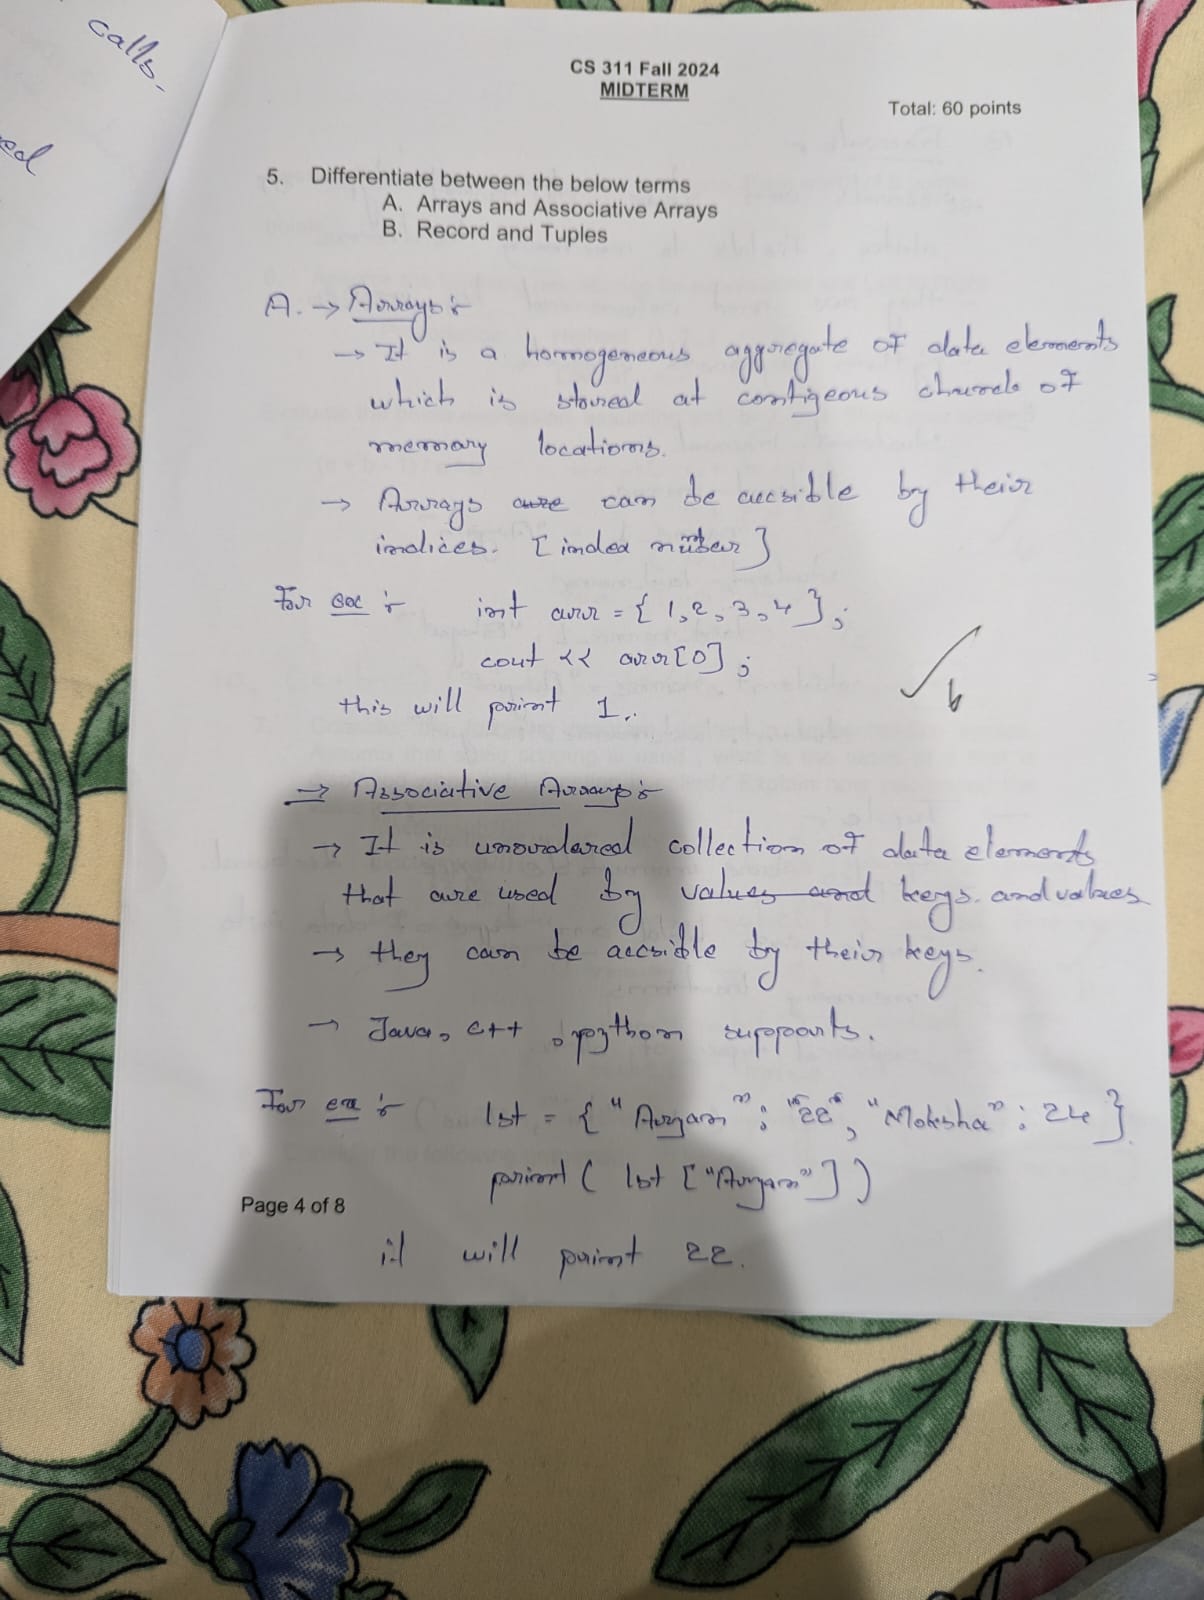 calls.
ed
CS 311 Fall 2024
MIDTERM
Total: 60 points
5. Differentiate between the below terms
A. Arrays and Associative Arrays
B. Record and Tuples
A. → Arrays :-
→ It is a homogeneous aggregate of data elements
which is stored at contigeous chunk of
memory locations.
→ Arrays are can be accsible by their
indices. [ index number ]
For ex :- int arr = { 1, 2, 3, 4 };
cout << arr[0] ;
this will print 1.
6
→ Associative Arrays :-
→ It is unordered collection of data elements
that are used by values and keys. and values
→ they can be accsible by their keys.
→ Java, C++, python supports.
For ex :- lst = { "Aryan" : "22", "Moksha" : 24 }
print ( lst ["Aryan"] )
Page 4 of 8
it will print 22.